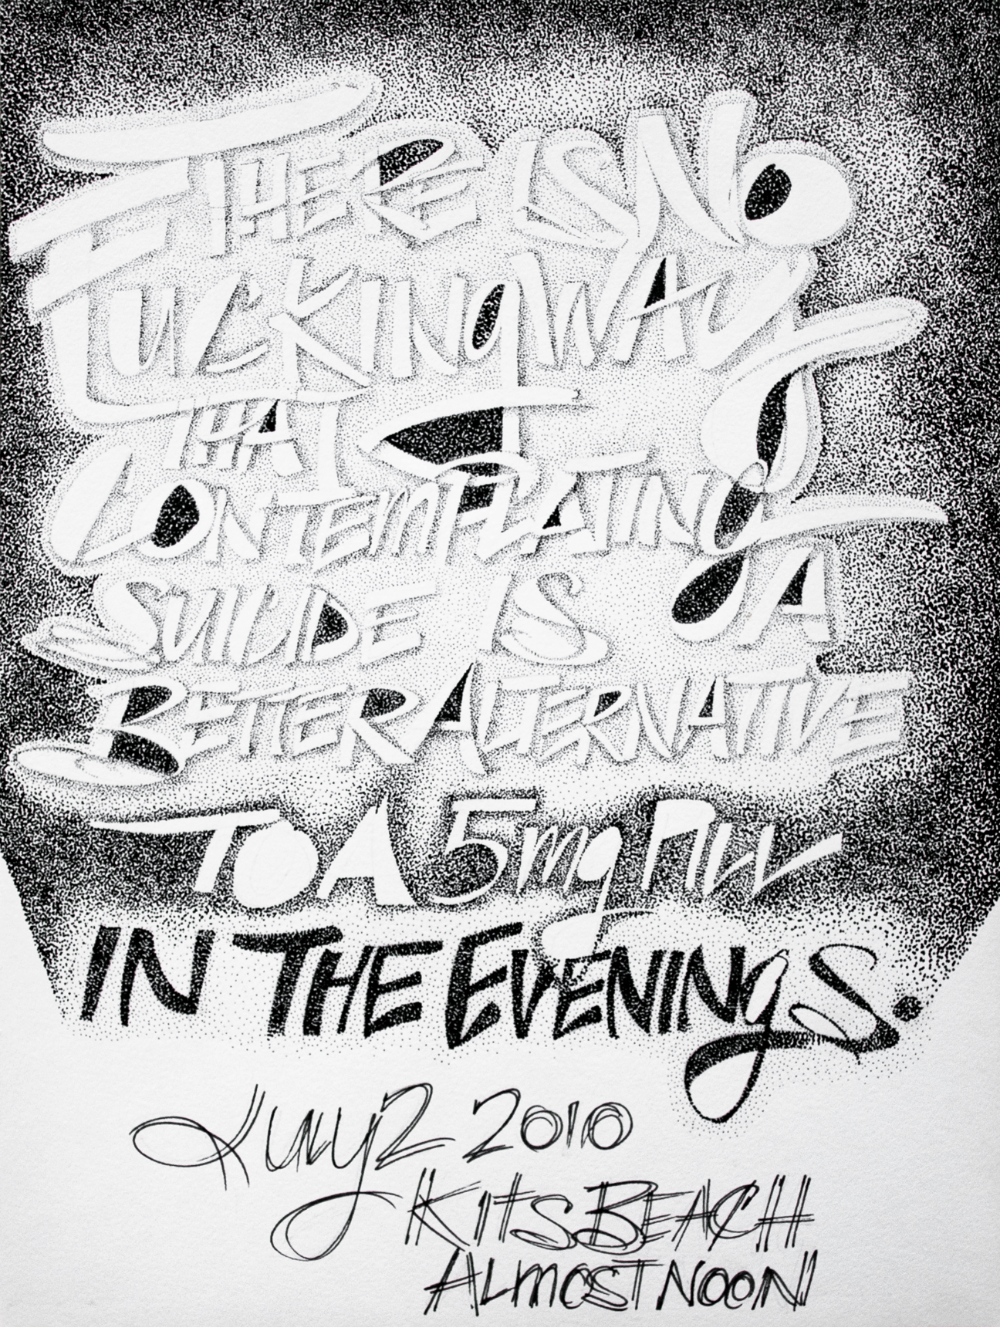 THERE IS NO
FUCKING WAY
THAT
CONTEMPLATING
SUICIDE IS A
BETTER ALTERNATIVE
TO A 5mg PILL
IN THE EVENINGS.
JULY 2 2010
KITS BEACH
ALMOST NOON